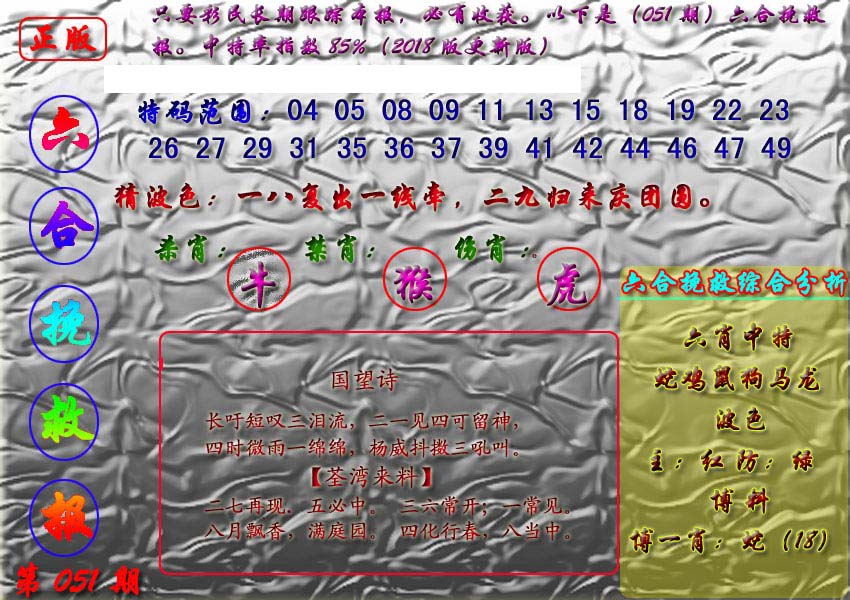 正版
只要彩民长期跟踪本报，必有收获。以下是（051期）六合挽救
报。中特率指数85%（2018版更新版）
六合挽救报
特码范围：04 05 08 09 11 13 15 18 19 22 23
26 27 29 31 35 36 37 39 41 42 44 46 47 49
猜波色：一八复出一线牵，二九归来庆团圆。
杀肖：牛 禁肖：猴 伤肖：虎
国望诗
长吁短叹三泪流，二一见四可留神，
四时微雨一绵绵，杨威抖擞三吼叫。
【荃湾来料】
二七再现．五必中。 三六常开；一常见。
八月飘香，满庭园。 四化行春，八当中。
六合挽救综合分析
六肖中特
蛇鸡鼠狗马龙
波色
主：红防：绿
博料
博一肖：蛇（18）
第051期